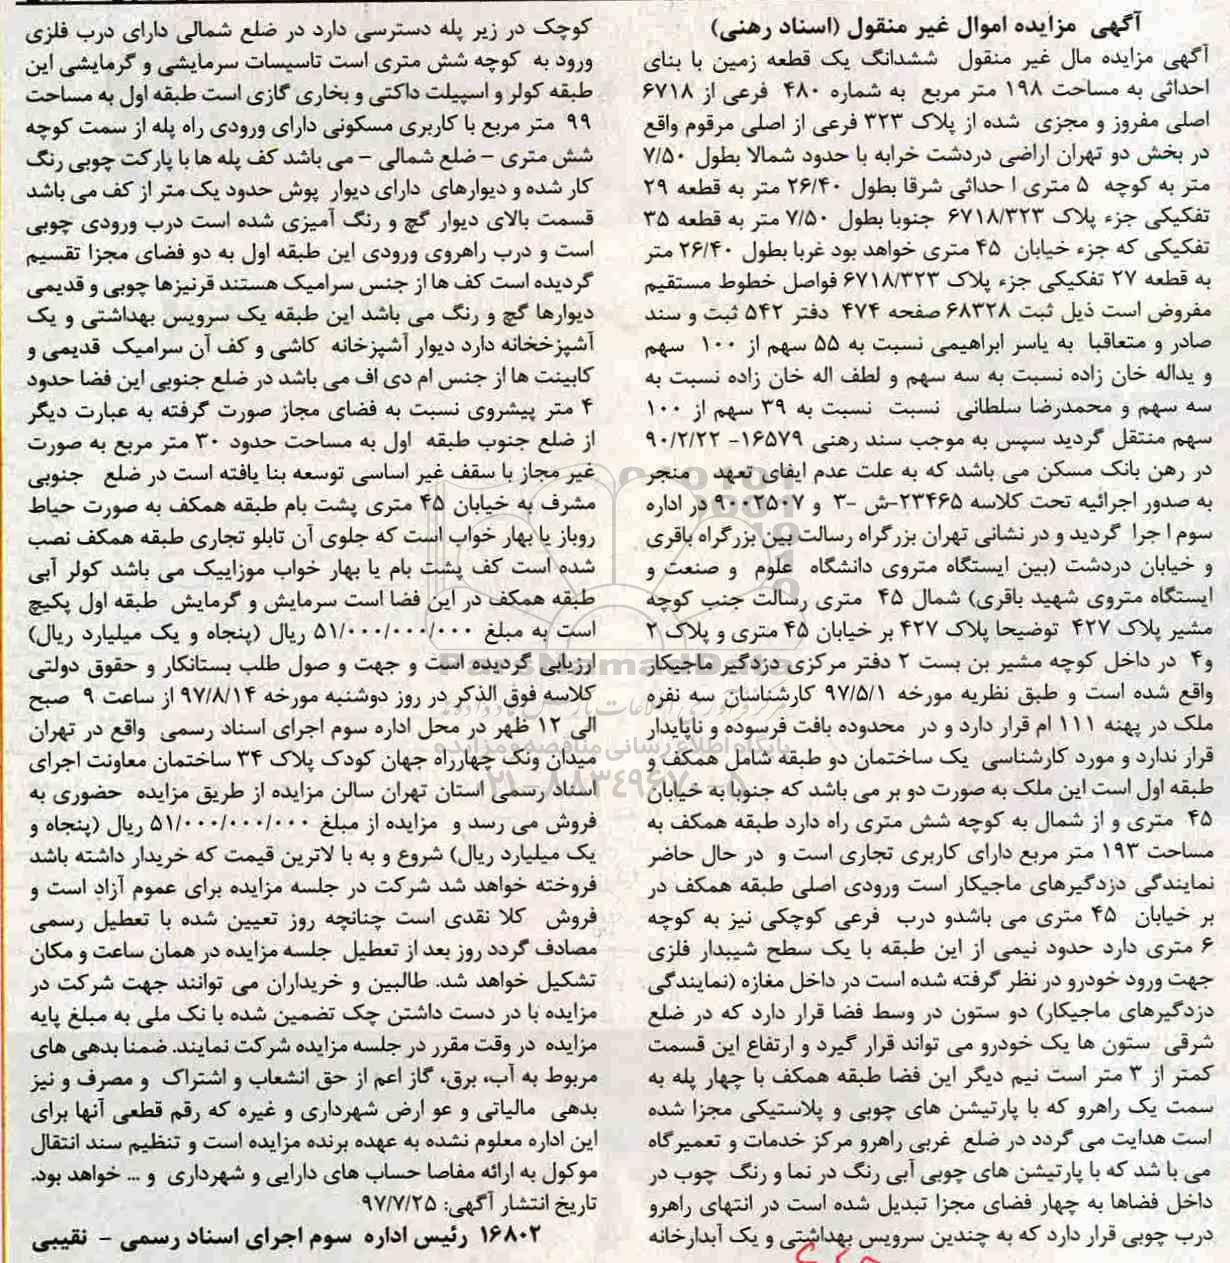 آگهی مزایده اموال غیر منقول (اسناد رهنی)
آگهی مزایده مال غیر منقول ششدانگ یک قطعه زمین با بنای
احداثی به مساحت ۱۹۸ متر مربع به شماره ۴۸۰ فرعی از ۶۷۱۸
اصلی مفروز و مجزی شده از پلاک ۳۲۳ فرعی از اصلی مرقوم واقع
در بخش دو تهران اراضی دردشت خرابه با حدود شمالا بطول ۷/۵۰
متر به کوچه ۵ متری ا حداثی شرقا بطول ۲۶/۴۰ متر به قطعه ۲۹
تفکیکی جزء پلاک ۶۷۱۸/۳۲۳ جنوبا بطول ۷/۵۰ متر به قطعه ۳۵
تفکیکی که جزء خیابان ۴۵ متری خواهد بود غربا بطول ۲۶/۴۰ متر
به قطعه ۲۷ تفکیکی جزء پلاک ۶۷۱۸/۳۲۳ فواصل خطوط مستقیم
مفروض است ذیل ثبت ۶۸۳۲۸ صفحه ۴۷۴ دفتر ۵۴۲ ثبت و سند
صادر و متعاقبا به یاسر ابراهیمی نسبت به ۵۵ سهم از ۱۰۰ سهم
و یداله خان زاده نسبت به سه سهم و لطف اله خان زاده نسبت به
سه سهم و محمدرضا سلطانی نسبت نسبت به ۳۹ سهم از ۱۰۰
سهم منتقل گردید سپس به موجب سند رهنی ۱۶۵۷۹- ۹۰/۲/۲۲
در رهن بانک مسکن می باشد که به علت عدم ایفای تعهد منجر
به صدور اجرائیه تحت کلاسه ۲۳۴۶۵-ش -۳ و ۹۰۰۲۵۰۷ در اداره
سوم ا جرا گردید و در نشانی تهران بزرگراه رسالت بین بزرگراه باقری
و خیابان دردشت (بین ایستگاه متروی دانشگاه علوم و صنعت و
ایستگاه متروی شهید باقری) شمال ۴۵ متری رسالت جنب کوچه
مشیر پلاک ۴۲۷ توضیحا پلاک ۴۲۷ بر خیابان ۴۵ متری و پلاک ۲
و۴ در داخل کوچه مشیر بن بست ۲ دفتر مرکزی دزدگیر ماجیکار
واقع شده است و طبق نظریه مورخه ۹۷/۵/۱ کارشناسان سه نفره
ملک در پهنه ۱۱۱ ام قرار دارد و در محدوده بافت فرسوده و ناپایدار
قرار ندارد و مورد کارشناسی یک ساختمان دو طبقه شامل همکف و
طبقه اول است این ملک به صورت دو بر می باشد که جنوبا به خیابان
۴۵ متری و از شمال به کوچه شش متری راه دارد طبقه همکف به
مساحت ۱۹۳ متر مربع دارای کاربری تجاری است و در حال حاضر
نمایندگی دزدگیرهای ماجیکار است ورودی اصلی طبقه همکف در
بر خیابان ۴۵ متری می باشدو درب فرعی کوچکی نیز به کوچه
۶ متری دارد حدود نیمی از این طبقه با یک سطح شیبدار فلزی
جهت ورود خودرو در نظر گرفته شده است در داخل مغازه (نمایندگی
دزدگیرهای ماجیکار) دو ستون در وسط فضا قرار دارد که در ضلع
شرقی ستون ها یک خودرو می تواند قرار گیرد و ارتفاع این قسمت
کمتر از ۳ متر است نیم دیگر این فضا طبقه همکف با چهار پله به
سمت یک راهرو که با پارتیشن های چوبی و پلاستیکی مجزا شده
است هدایت می گردد در ضلع غربی راهرو مرکز خدمات و تعمیرگاه
می با شد که با پارتیشن های چوبی آبی رنگ در نما و رنگ چوب در
داخل فضاها به چهار فضای مجزا تبدیل شده است در انتهای راهرو
درب چوبی قرار دارد که به چندین سرویس بهداشتی و یک آبدارخانه
کوچک در زیر پله دسترسی دارد در ضلع شمالی دارای درب فلزی
ورود به کوچه شش متری است تاسیسات سرمایشی و گرمایشی این
طبقه کولر و اسپیلت داکتی و بخاری گازی است طبقه اول به مساحت
۹۹ متر مربع با کاربری مسکونی دارای ورودی راه پله از سمت کوچه
شش متری - ضلع شمالی - می باشد کف پله ها با پارکت چوبی رنگ
کار شده و دیوارهای دارای دیوار پوش حدود یک متر از کف می باشد
قسمت بالای دیوار گچ و رنگ آمیزی شده است درب ورودی چوبی
است و درب راهروی ورودی این طبقه اول به دو فضای مجزا تقسیم
گردیده است کف ها از جنس سرامیک هستند قرنیزها چوبی و قدیمی
دیوارها گچ و رنگ می باشد این طبقه یک سرویس بهداشتی و یک
آشپزخخانه دارد دیوار آشپزخانه کاشی و کف آن سرامیک قدیمی و
کابینت ها از جنس ام دی اف می باشد در ضلع جنوبی این فضا حدود
۴ متر پیشروی نسبت به فضای مجاز صورت گرفته به عبارت دیگر
از ضلع جنوب طبقه اول به مساحت حدود ۳۰ متر مربع به صورت
غیر مجاز با سقف غیر اساسی توسعه بنا یافته است در ضلع جنوبی
مشرف به خیابان ۴۵ متری پشت بام طبقه همکف به صورت حیاط
روباز یا بهار خواب است که جلوی آن تابلو تجاری طبقه همکف نصب
شده است کف پشت بام یا بهار خواب موزاییک می باشد کولر آبی
طبقه همکف در این فضا است سرمایش و گرمایش طبقه اول پکیج
است به مبلغ ۵۱/۰۰۰/۰۰۰/۰۰۰ ریال (پنجاه و یک میلیارد ریال)
ارزیابی گردیده است و جهت و صول طلب بستانکار و حقوق دولتی
کلاسه فوق الذکر در روز دوشنبه مورخه ۹۷/۸/۱۴ از ساعت ۹ صبح
الی ۱۲ ظهر در محل اداره سوم اجرای اسناد رسمی واقع در تهران
میدان ونک چهارراه جهان کودک پلاک ۳۴ ساختمان معاونت اجرای
اسناد رسمی استان تهران سالن مزایده از طریق مزایده حضوری به
فروش می رسد و مزایده از مبلغ ۵۱/۰۰۰/۰۰۰/۰۰۰ ریال (پنجاه و
یک میلیارد ریال) شروع و به با لاترین قیمت که خریدار داشته باشد
فروخته خواهد شد شرکت در جلسه مزایده برای عموم آزاد است و
فروش کلا نقدی است چنانچه روز تعیین شده با تعطیل رسمی
مصادف گردد روز بعد از تعطیل جلسه مزایده در همان ساعت و مکان
تشکیل خواهد شد. طالبین و خریداران می توانند جهت شرکت در
مزایده با در دست داشتن چک تضمین شده با نک ملی به مبلغ پایه
مزایده در وقت مقرر در جلسه مزایده شرکت نمایند. ضمنا بدهی های
مربوط به آب، برق، گاز اعم از حق انشعاب و اشتراک و مصرف و نیز
بدهی مالیاتی و عو ارض شهرداری و غیره که رقم قطعی آنها برای
این اداره معلوم نشده به عهده برنده مزایده است و تنظیم سند انتقال
موکول به ارائه مفاصا حساب های دارایی و شهرداری و ... خواهد بود.
تاریخ انتشار آگهی: ۹۷/۷/۲۵
۱۶۸۰۲ رئیس اداره سوم اجرای اسناد رسمی - نقیبی